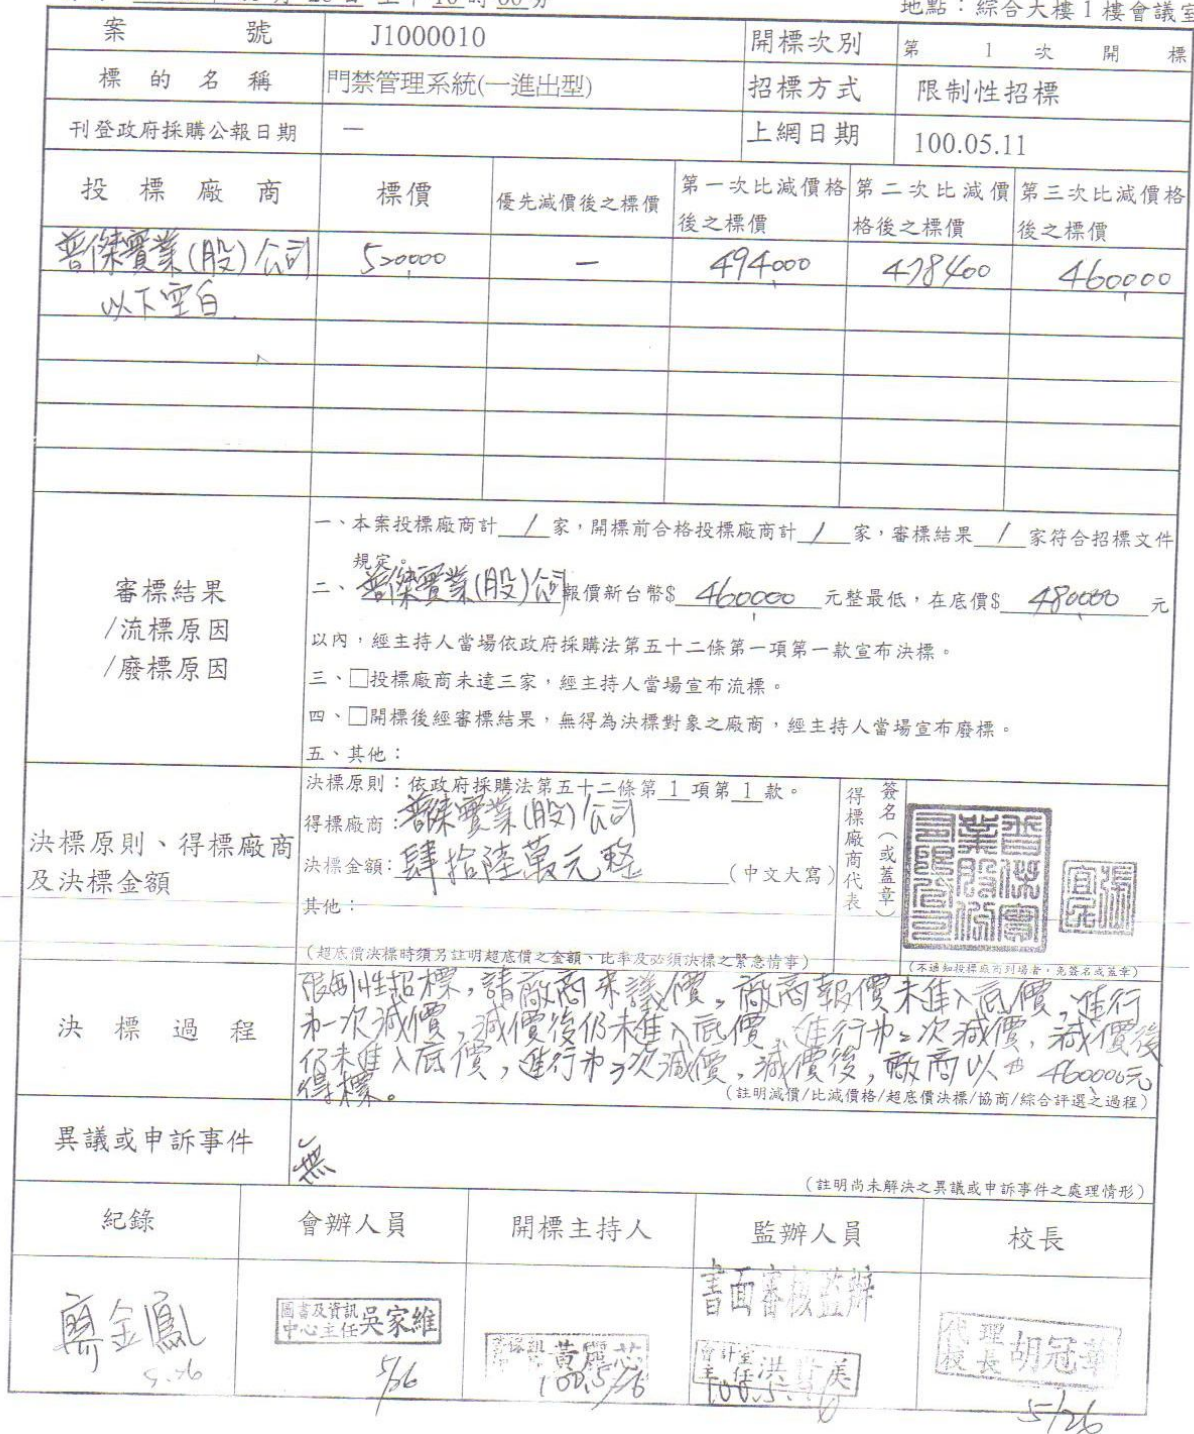 地點：綜合大樓1樓會議室
案 號 J1000010 開標次別 第 1 次 開 標
標 的 名 稱 門禁管理系統(一進出型) 招標方式 限制性招標
刊登政府採購公報日期 — 上網日期 100.05.11
投 標 廠 商 標價 優先減價後之標價 第一次比減價格後之標價 第二次比減價格後之標價 第三次比減價格後之標價
普傑實業(股)公司 520,000 — 494,000 478,400 460,000
以下空白
審標結果
/流標原因
/廢標原因
一、本案投標廠商計 1 家，開標前合格投標廠商計 1 家，審標結果 1 家符合招標文件
規定。
二、普傑實業(股)公司報價新台幣$ 460,000 元整最低，在底價$ 480,000 元
以內，經主持人當場依政府採購法第五十二條第一項第一款宣布決標。
三、□投標廠商未達三家，經主持人當場宣布流標。
四、□開標後經審標結果，無得為決標對象之廠商，經主持人當場宣布廢標。
五、其他：
決標原則、得標廠商
及決標金額
決標原則：依政府採購法第五十二條第 1 項第 1 款。
得標廠商：普傑實業(股)公司
決標金額：肆拾陸萬元整 (中文大寫)
其他：
(超底價決標時須另註明超底價之金額、比率及必須決標之緊急情事)
得標廠商代表
簽名(或蓋章)
普傑實業股份有限公司
(不通知投標廠商到場者，免簽名或蓋章)
決 標 過 程
限制性招標，請廠商來議價，廠商報價未進入底價，進行
第一次減價，減價後仍未進入底價，進行第2次減價，減價後
仍未進入底價，進行第3次減價，減價後，廠商以 460000元
得標。
(註明減價/比減價格/超底價決標/協商/綜合評選之過程)
異議或申訴事件
無
(註明尚未解決之異議或申訴事件之處理情形)
紀錄 會辦人員 開標主持人 監辦人員 校長
廖金鳳
5.26
圖書及資訊
中心主任 吳家維
5/26
黃麗芯
100.5/26
書面審核監辦
會計室
主任 洪
100.5.
代理
校長 胡冠華
5/26